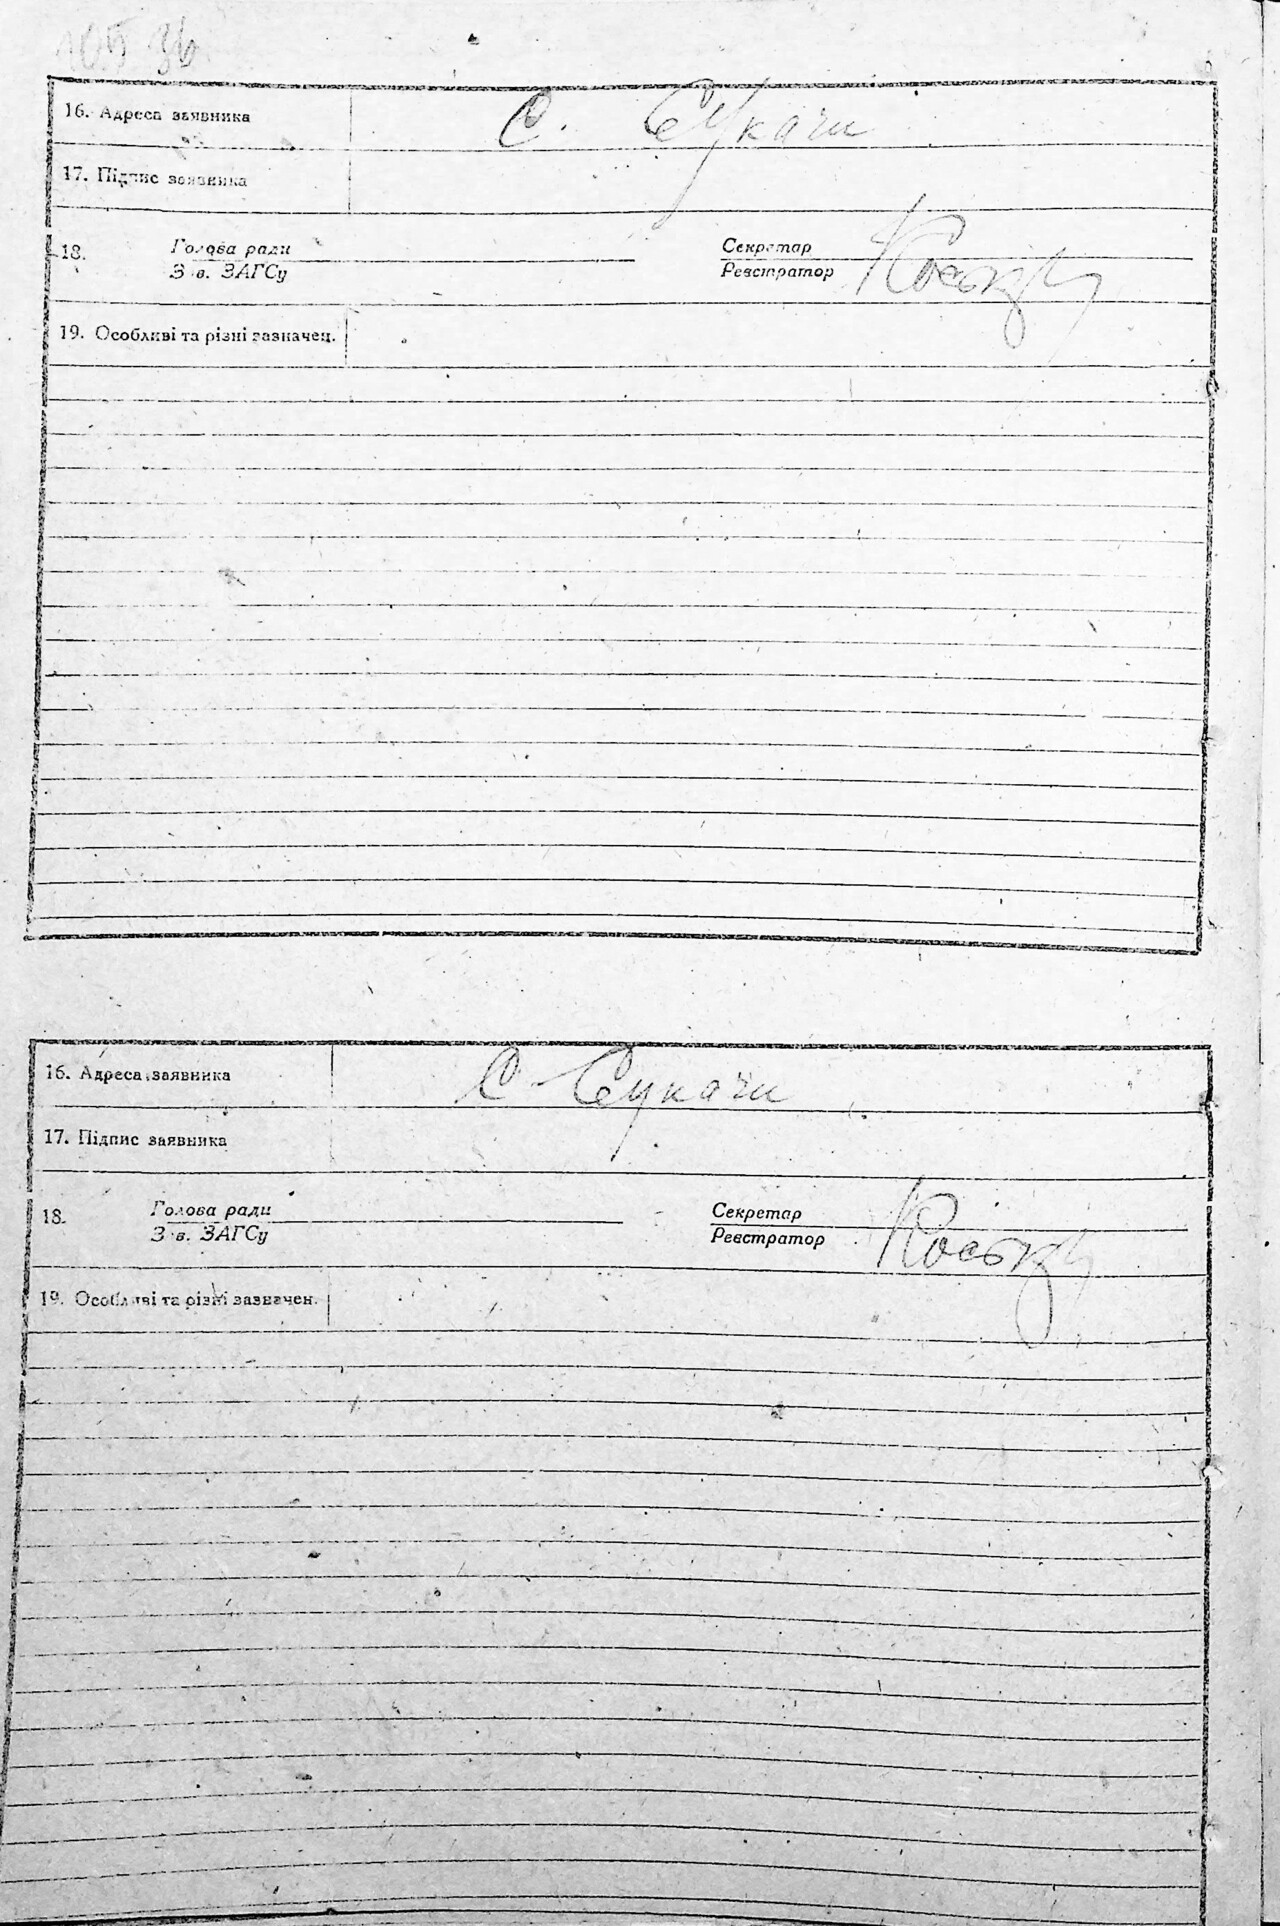 16. Адреса заявника С. Сукачи
17. Підпис заявника
18. Голова ради Секретар
Зав. ЗАГСу Реєстратор
19. Особливі та різні зазначен.
16. Адреса заявника С Сукачи
17. Підпис заявника
18. Голова ради Секретар
Зав. ЗАГСу Реєстратор
19. Особливі та різні зазначен.